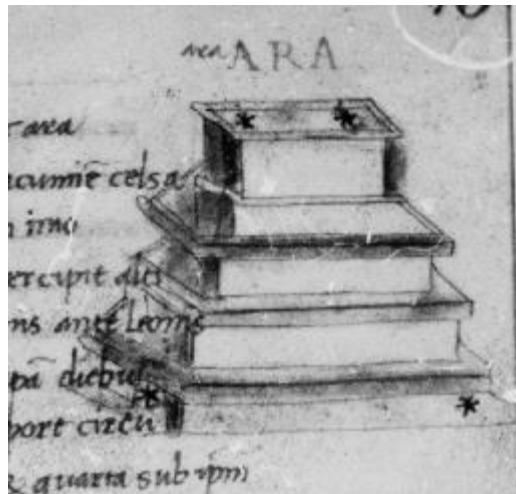 area ARA
area
acumiē celsa
imo
ercipit alti
ns ante leonis
pā diebus
port circū
quarta sub ipm